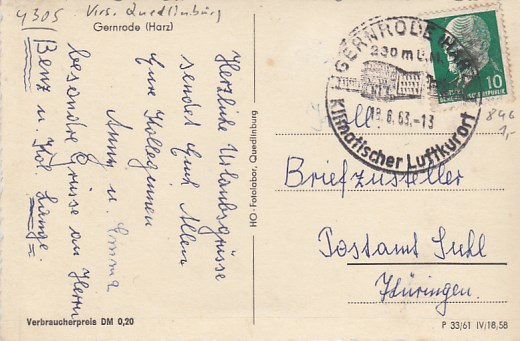 4305 Krs. Quedlinburg
Gernrode (Harz)
Herzliche Urlaubsgrüsse
sendet Euch Allen
Eure Kolleginnen
Anni u. Emma
besondre Grüsse an Herrn
Benz u. Kol. Lange.
Verbraucherpreis DM 0,20
HO-Fotolabor, Quedlinburg
GERNRODE/HARZ
230 m ü.M.
8.63.-13
Klimatischer Luftkurort
10
DEUTSCHE DEMOKRATISCHE REPUBLIK
846
1,-
Briefzusteller
Postamt Suhl
Thüringen.
P 33/61 IV/18,58